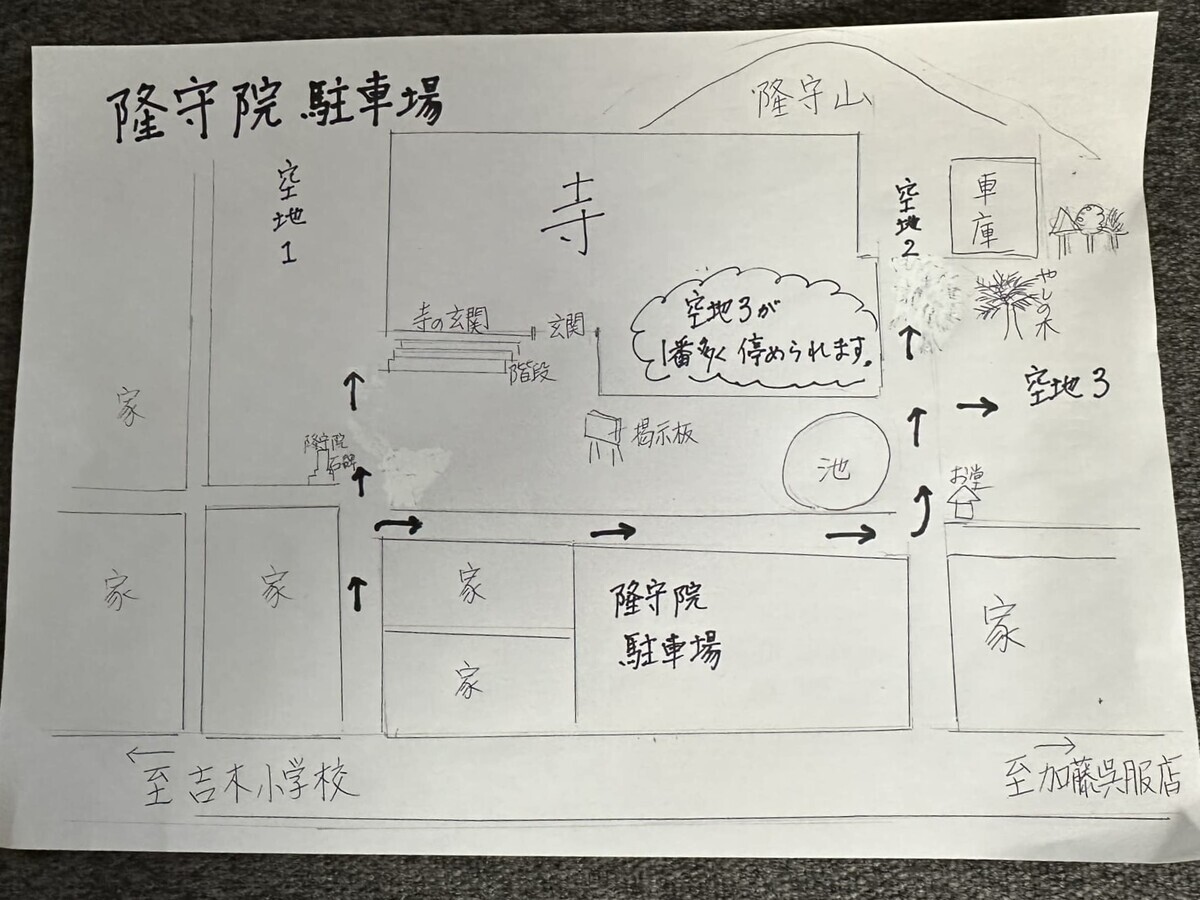 隆守院 駐車場
隆守山
空地1
寺
空地2
車庫
やしの木
空地3が
1番多く停められます。
寺の玄関
玄関
階段
家
空地3
隆守院
石碑
掲示板
池
お堂
家
家
家
隆守院
駐車場
家
家
←
至 吉木小学校
→
至加藤呉服店